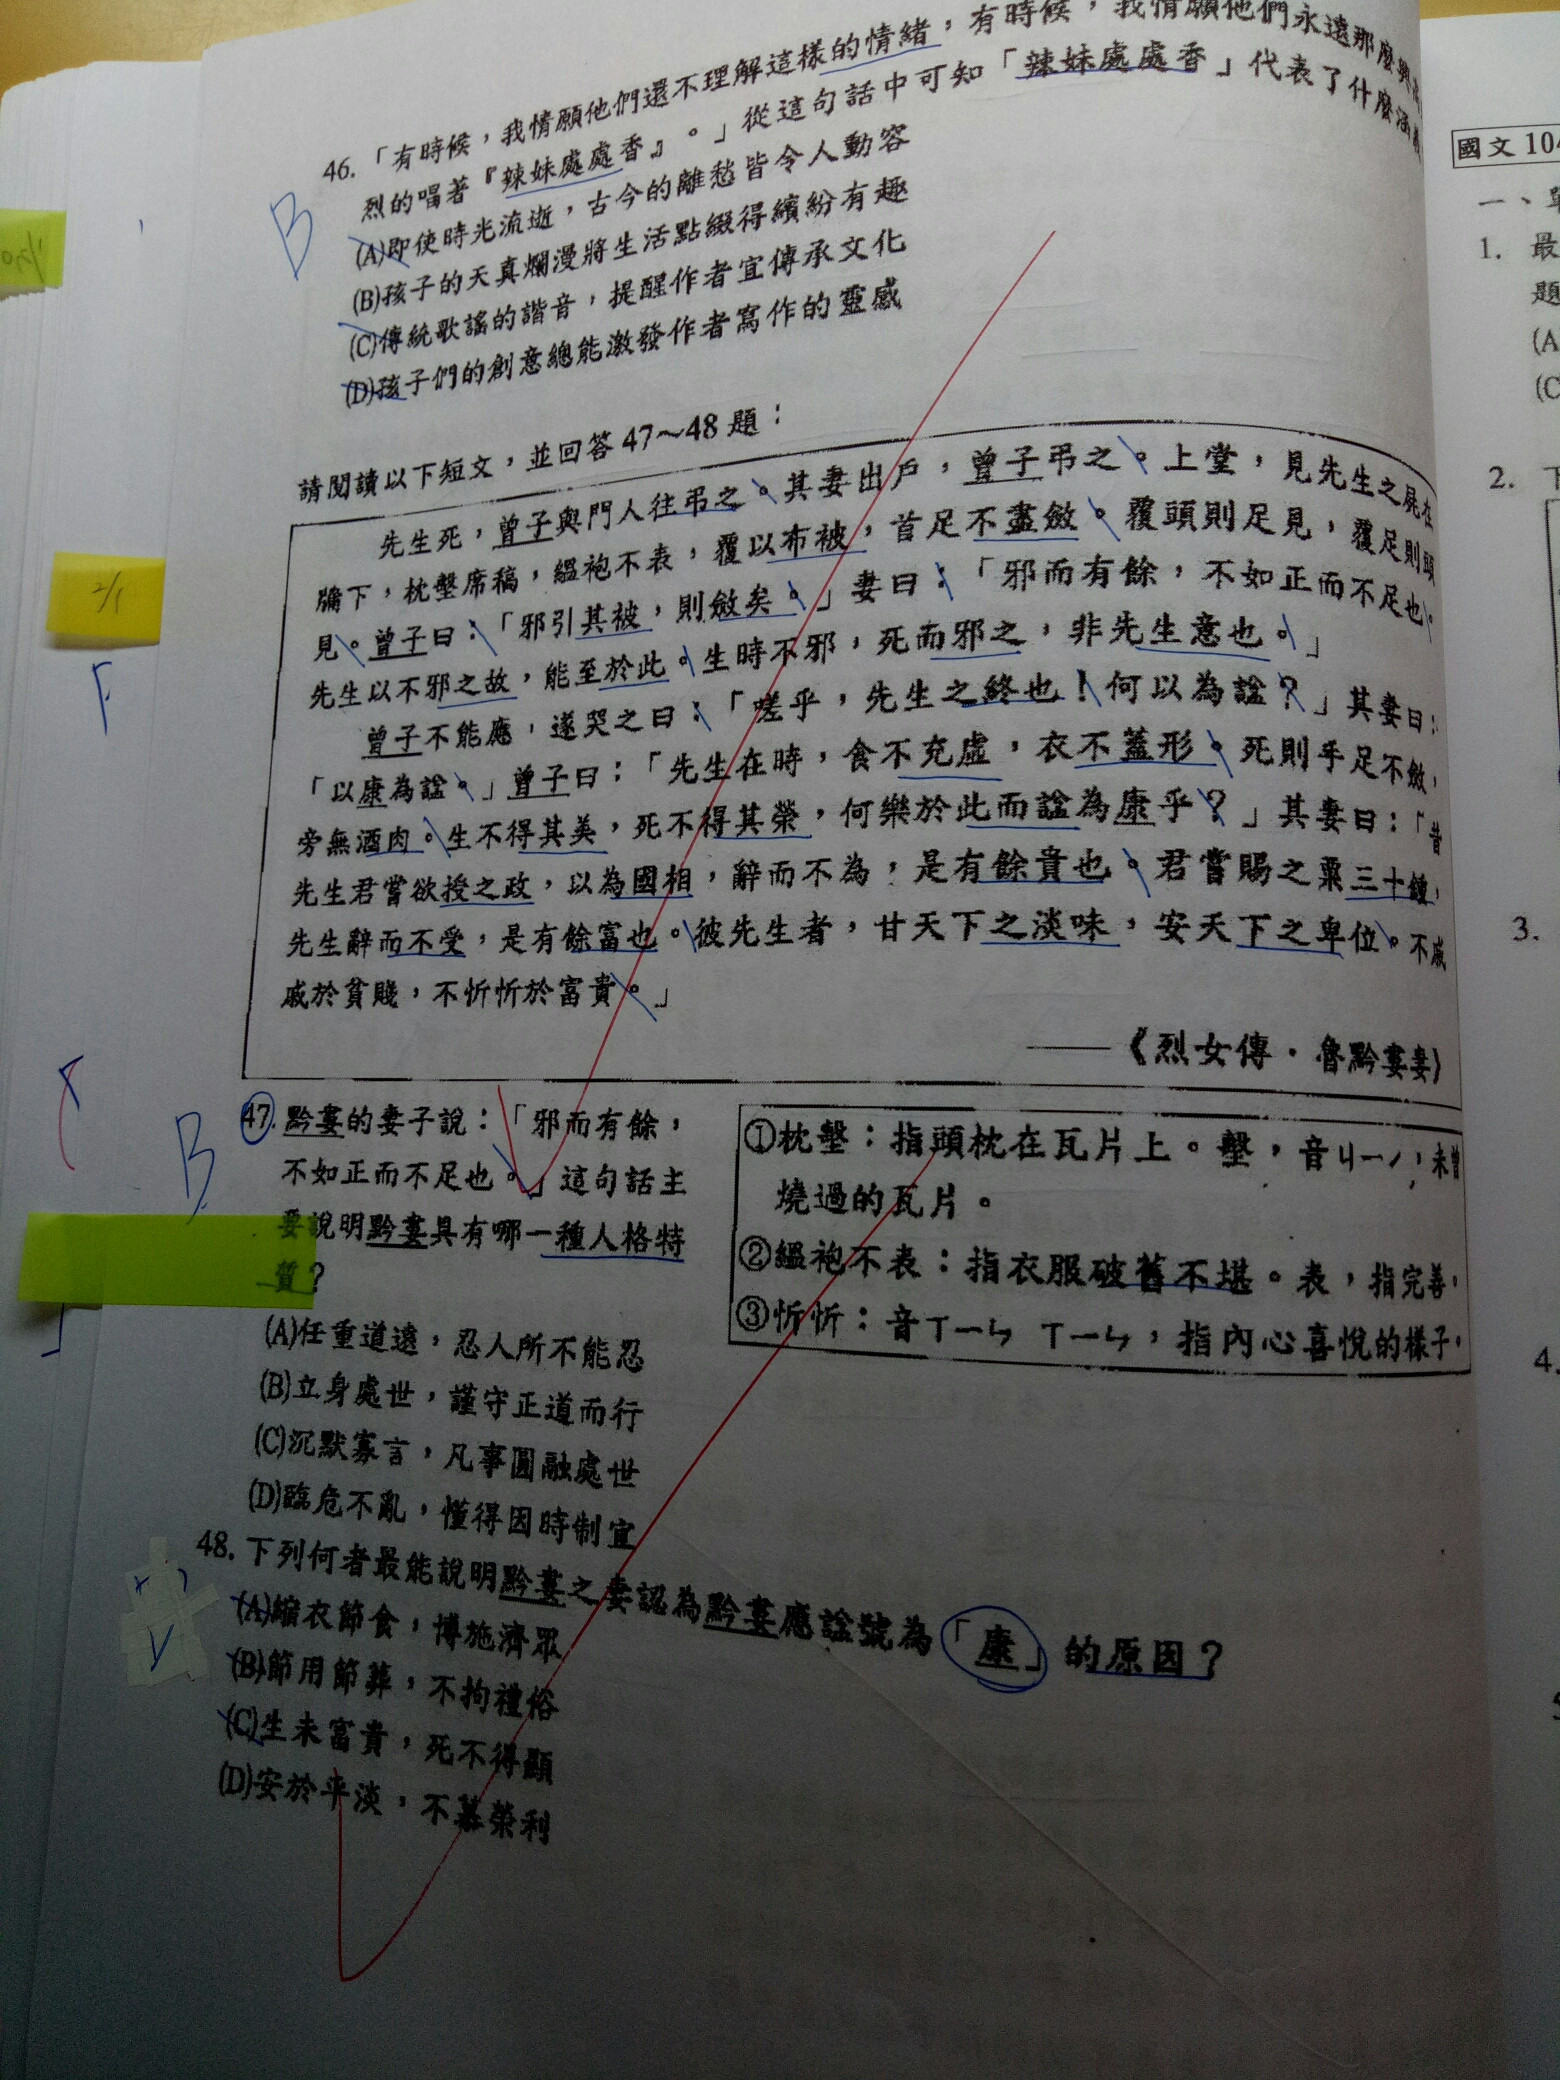 46.「有時候，我情願他們還不理解這樣的情緒，有時候，我情願他們永遠那麼興高
烈的唱著『辣妹處處香』。」從這句話中可知「辣妹處處香」代表了什麼涵義
(A)即使時光流逝，古今的離愁皆令人動容
(B)孩子的天真爛漫將生活點綴得繽紛有趣
(C)傳統歌謠的諧音，提醒作者宜傳承文化
(D)孩子們的創意總能激發作者寫作的靈感
B
請閱讀以下短文，並回答47～48題：
先生死，曾子與門人往弔之。其妻出戶，曾子弔之。上堂，見先生之屍在
牖下，枕墼席稿，縕袍不表，覆以布被，首足不盡斂。覆頭則足見，覆足則頭
見。曾子曰：「邪引其被，則斂矣。」妻曰：「邪而有餘，不如正而不足也。
先生以不邪之故，能至於此。生時不邪，死而邪之，非先生意也。」
曾子不能應，遂哭之曰：「嗟乎，先生之終也！何以為諡？」其妻曰：
「以康為諡。」曾子曰：「先生在時，食不充虛，衣不蓋形。死則手足不斂，
旁無酒肉。生不得其美，死不得其榮，何樂於此而諡為康乎？」其妻曰：「昔
先生君嘗欲授之政，以為國相，辭而不為，是有餘貴也。君嘗賜之粟三十鍾，
先生辭而不受，是有餘富也。彼先生者，甘天下之淡味，安天下之卑位。不戚
戚於貧賤，不忻忻於富貴。」
——《烈女傳．魯黔婁妻》
B
47.黔婁的妻子說：「邪而有餘，
不如正而不足也。」這句話主
要說明黔婁具有哪一種人格特
質？
(A)任重道遠，忍人所不能忍
(B)立身處世，謹守正道而行
(C)沉默寡言，凡事圓融處世
(D)臨危不亂，懂得因時制宜
①枕墼：指頭枕在瓦片上。墼，音ㄐㄧˊ，未曾
燒過的瓦片。
②縕袍不表：指衣服破舊不堪。表，指完善。
③忻忻：音ㄒㄧㄣ ㄒㄧㄣ，指內心喜悅的樣子。
48.下列何者最能說明黔婁之妻認為黔婁應諡號為「康」的原因？
(A)縮衣節食，博施濟眾
(B)節用節葬，不拘禮俗
(C)生未富貴，死不得顯
(D)安於平淡，不慕榮利
2/1
國文 104
一、單
1. 最
題
(A
(C
2. 下
3.
4.